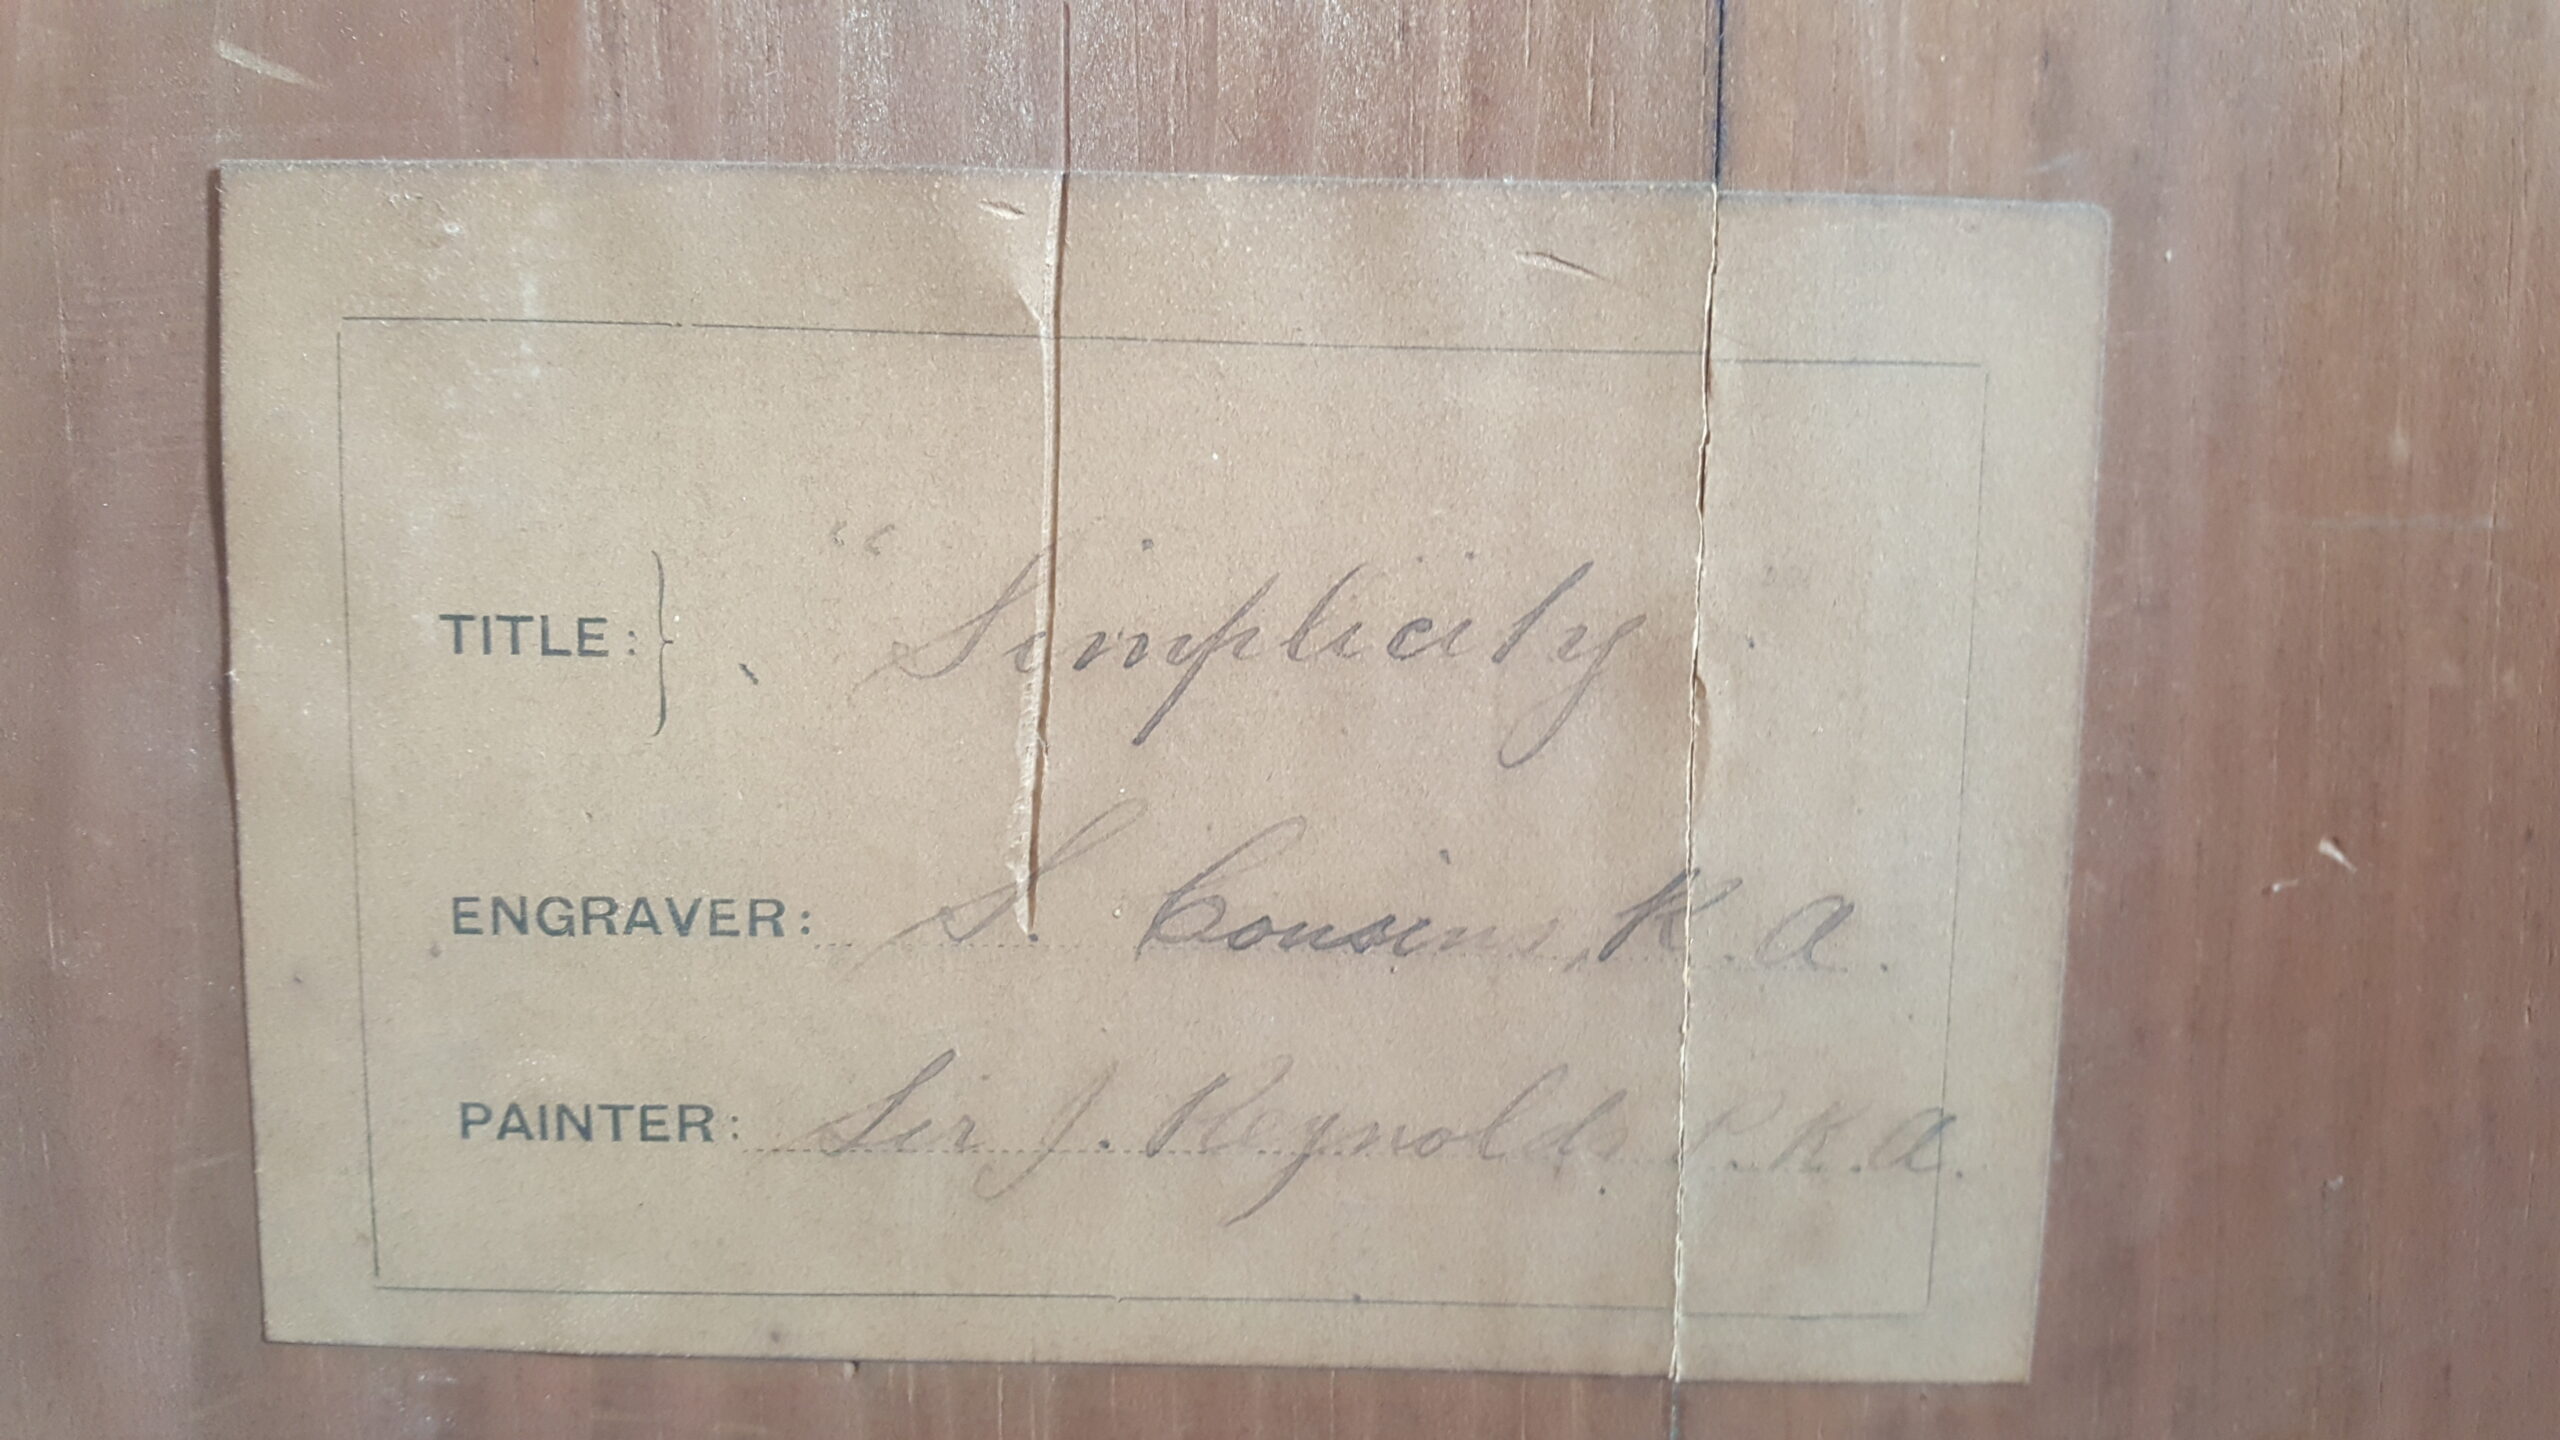 TITLE: } "Simplicity"
ENGRAVER: S. Cousins, R.A.
PAINTER: Sir J. Reynolds P.R.A.